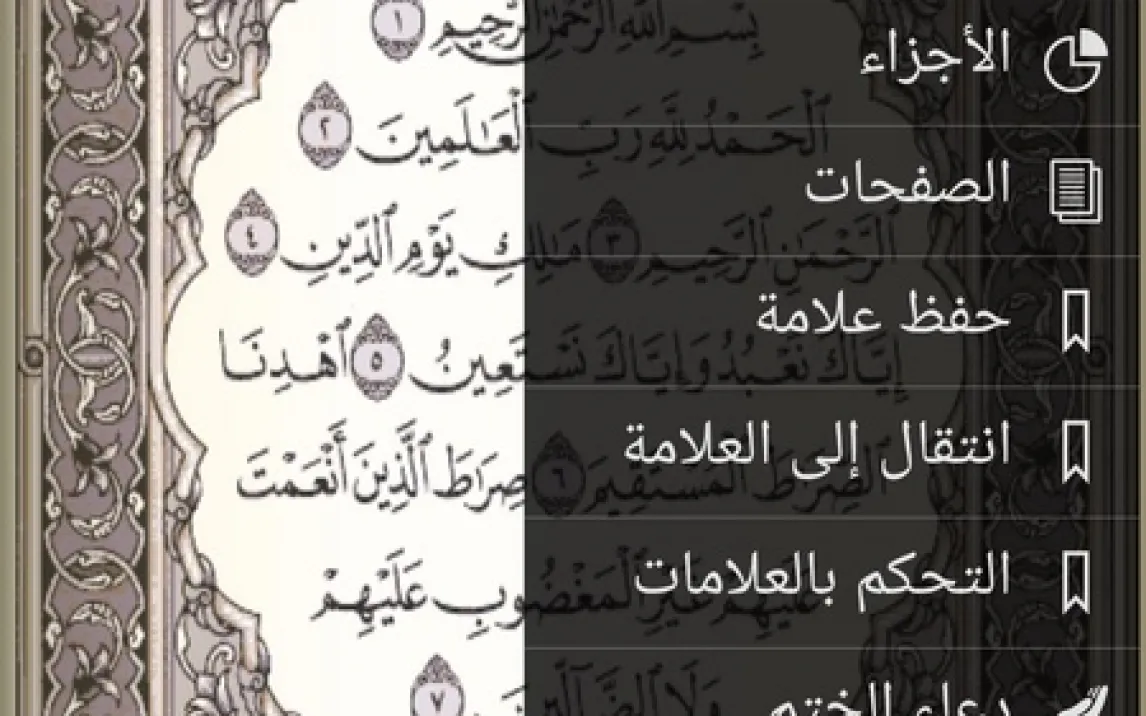 الأجزاء
الصفحات
حفظ علامة
انتقال إلى العلامة
التحكم بالعلامات
دعاء الختم
بِسْمِ ٱللَّهِ ٱلرَّحْمَٰنِ ٱلرَّحِيمِ ١
ٱلْحَمْدُ لِلَّهِ رَبِّ ٱلْعَٰلَمِينَ ٢
ٱلرَّحْمَٰنِ ٱلرَّحِيمِ ٣ مَٰلِكِ يَوْمِ ٱلدِّينِ ٤
إِيَّاكَ نَعْبُدُ وَإِيَّاكَ نَسْتَعِينُ ٥ ٱهْدِنَا
ٱلصِّرَٰطَ ٱلْمُسْتَقِيمَ ٦ صِرَٰطَ ٱلَّذِينَ أَنْعَمْتَ
عَلَيْهِمْ غَيْرِ ٱلْمَغْضُوبِ عَلَيْهِمْ
وَلَا ٱلضَّآلِّينَ ٧